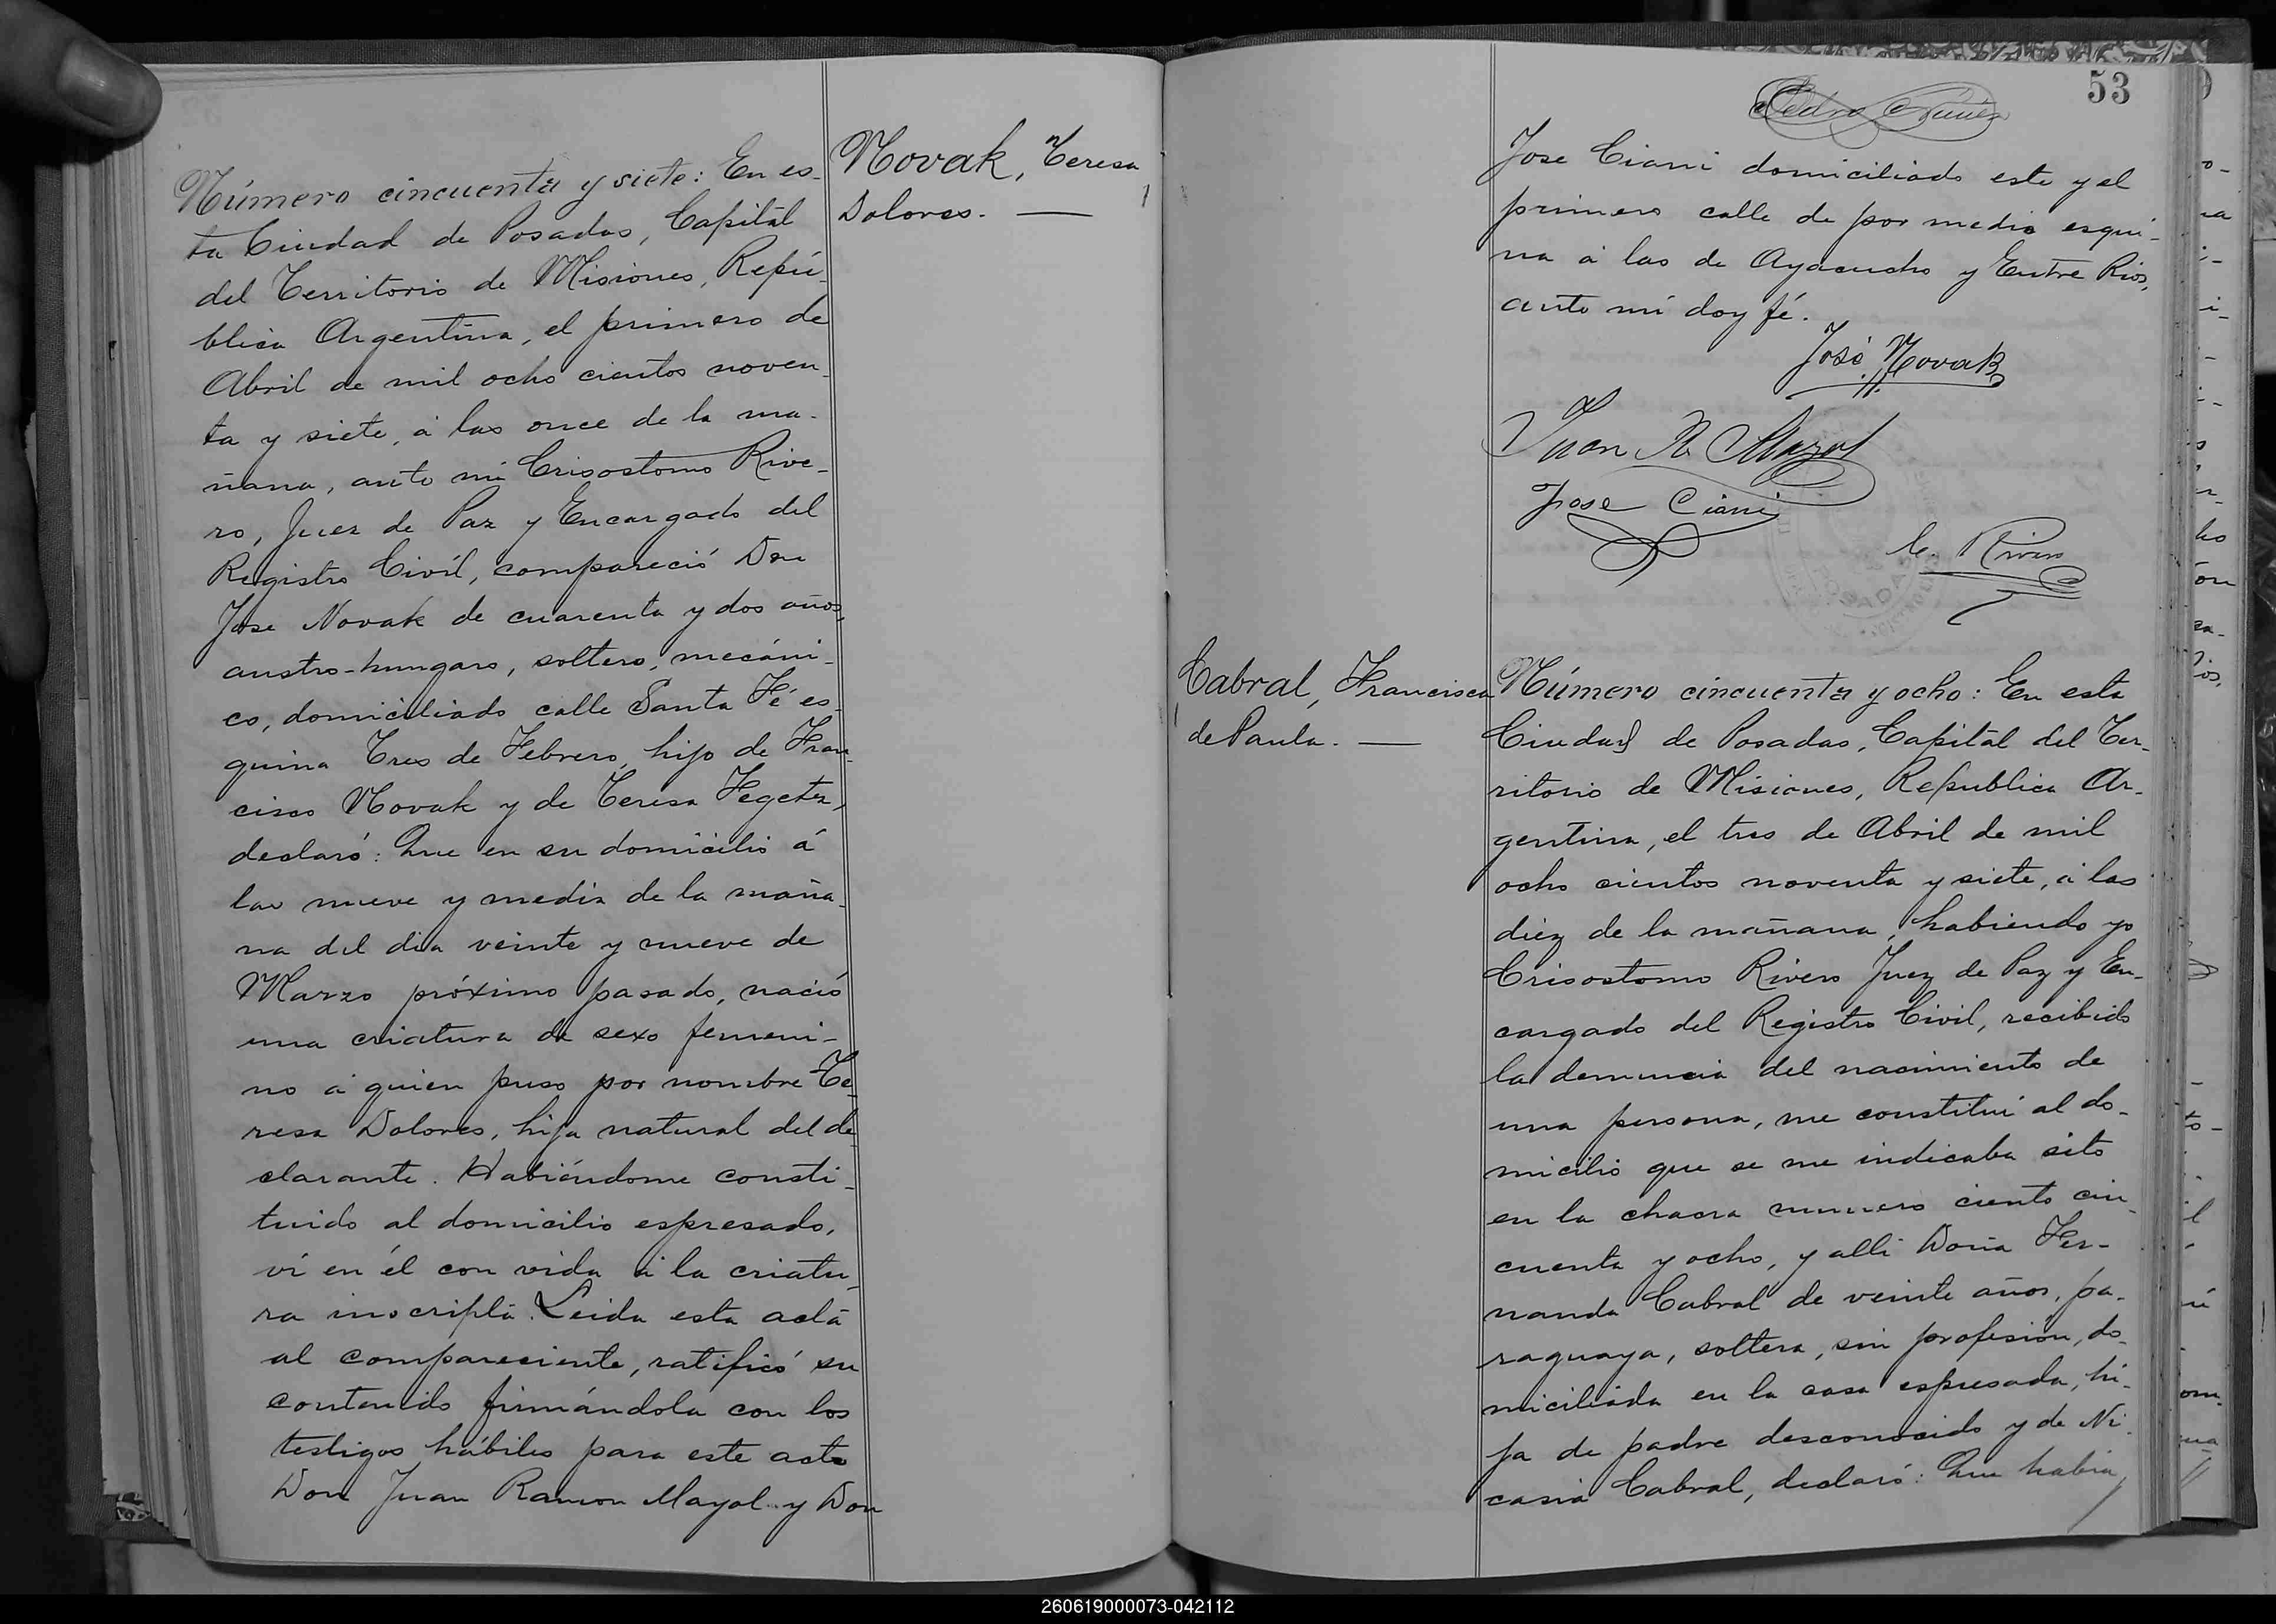 Número cincuenta y siete: En es-
ta Ciudad de Posadas, Capital
del Territorio de Misiones, Repú-
blica Argentina, el primero de
Abril de mil ocho cientos noven-
ta y siete, á las once de la ma-
ñana, ante mi Crisostomo Rive-
ro, Juez de Paz y Encargado del
Registro Civil, compareció Don
Jose Novak de cuarenta y dos años,
austro-hungaro, soltero, mecáni-
co, domiciliado calle Santa Fé es-
quina Tres de Febrero, hijo de Fran-
cisco Novak y de Teresa Fegetz,
declaró: Que en su domicilio á
las nueve y media de la maña-
na del dia veinte y nueve de
Marzo próximo pasado, nació
una criatura de sexo femeni-
no á quien puso por nombre Te-
resa Dolores, hija natural del de-
clarante. Habiéndome consti-
tuido al domicilio espresado,
ví en él con vida á la criatu-
ra inscripta. Leida esta acta
al compareciente, ratificó su
contenido firmándola con los
testigos hábiles para este acto
Don Juan Ramon Mayol y Don
Novak, Teresa
Dolores.
53
Pedro
Jose Ciani domiciliado este y el
primero calle de por medio esqui-
na á las de Ayacucho y Entre Rios,
ante mí doy fé.
José Novak
Juan R. Mayol
Jose Ciani
C. Rivero
Cabral, Francisca
de Paula.
Número cincuenta y ocho: En esta
Ciudad de Posadas, Capital del Ter-
ritorio de Misiones, Republica Ar-
gentina, el tres de Abril de mil
ocho cientos noventa y siete, á las
diez de la mañana, habiendo yo
Crisostomo Rivero Juez de Paz y En-
cargado del Registro Civil, recibido
la denuncia del nacimiento de
una persona, me constituí al do-
micilio que se me indicaba sito
en la chacra numero ciento cin-
cuenta y ocho, y alli Doña Fer-
nanda Cabral de veinte años, pa-
raguaya, soltera, sin profesión, do-
miciliada en la casa espresada, hi-
ja de padre desconocido y de Ni-
casia Cabral, declaró: Que habia
260619000073-042112